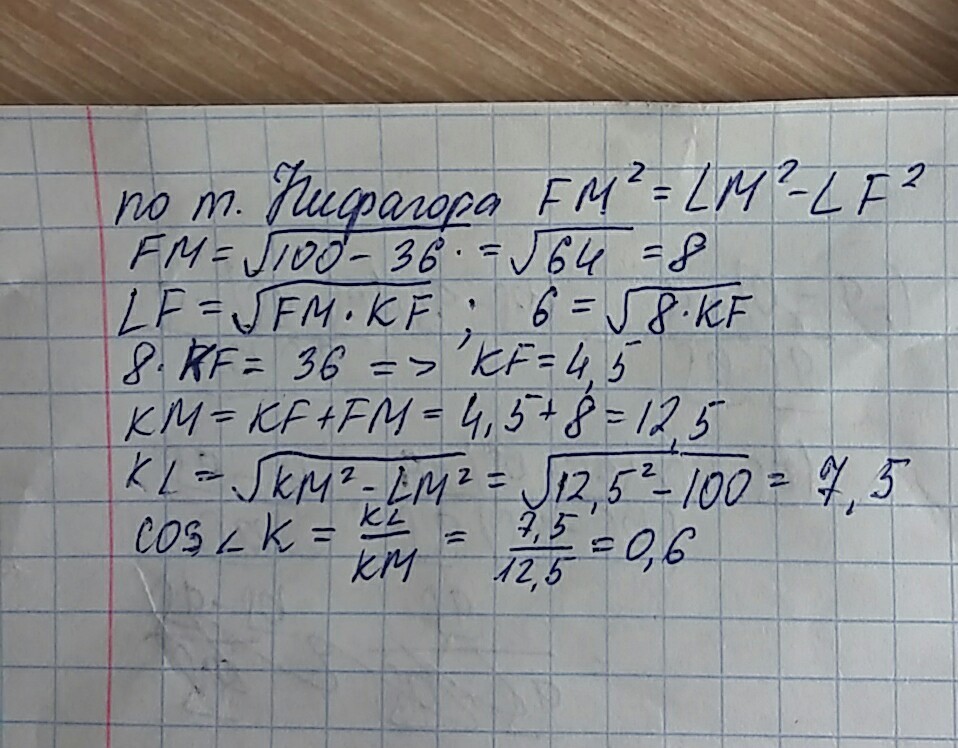 по т. Пифагора FM² = LM² - LF²
FM = √100 - 36 = √64 = 8
LF = √FM · KF ; 6 = √8 · KF
8 · KF = 36 => KF = 4,5
KM = KF + FM = 4,5 + 8 = 12,5
KL = √KM² - LM² = √12,5² - 100 = 7,5
cos ∠ K = KL/KM = 7,5/12,5 = 0,6